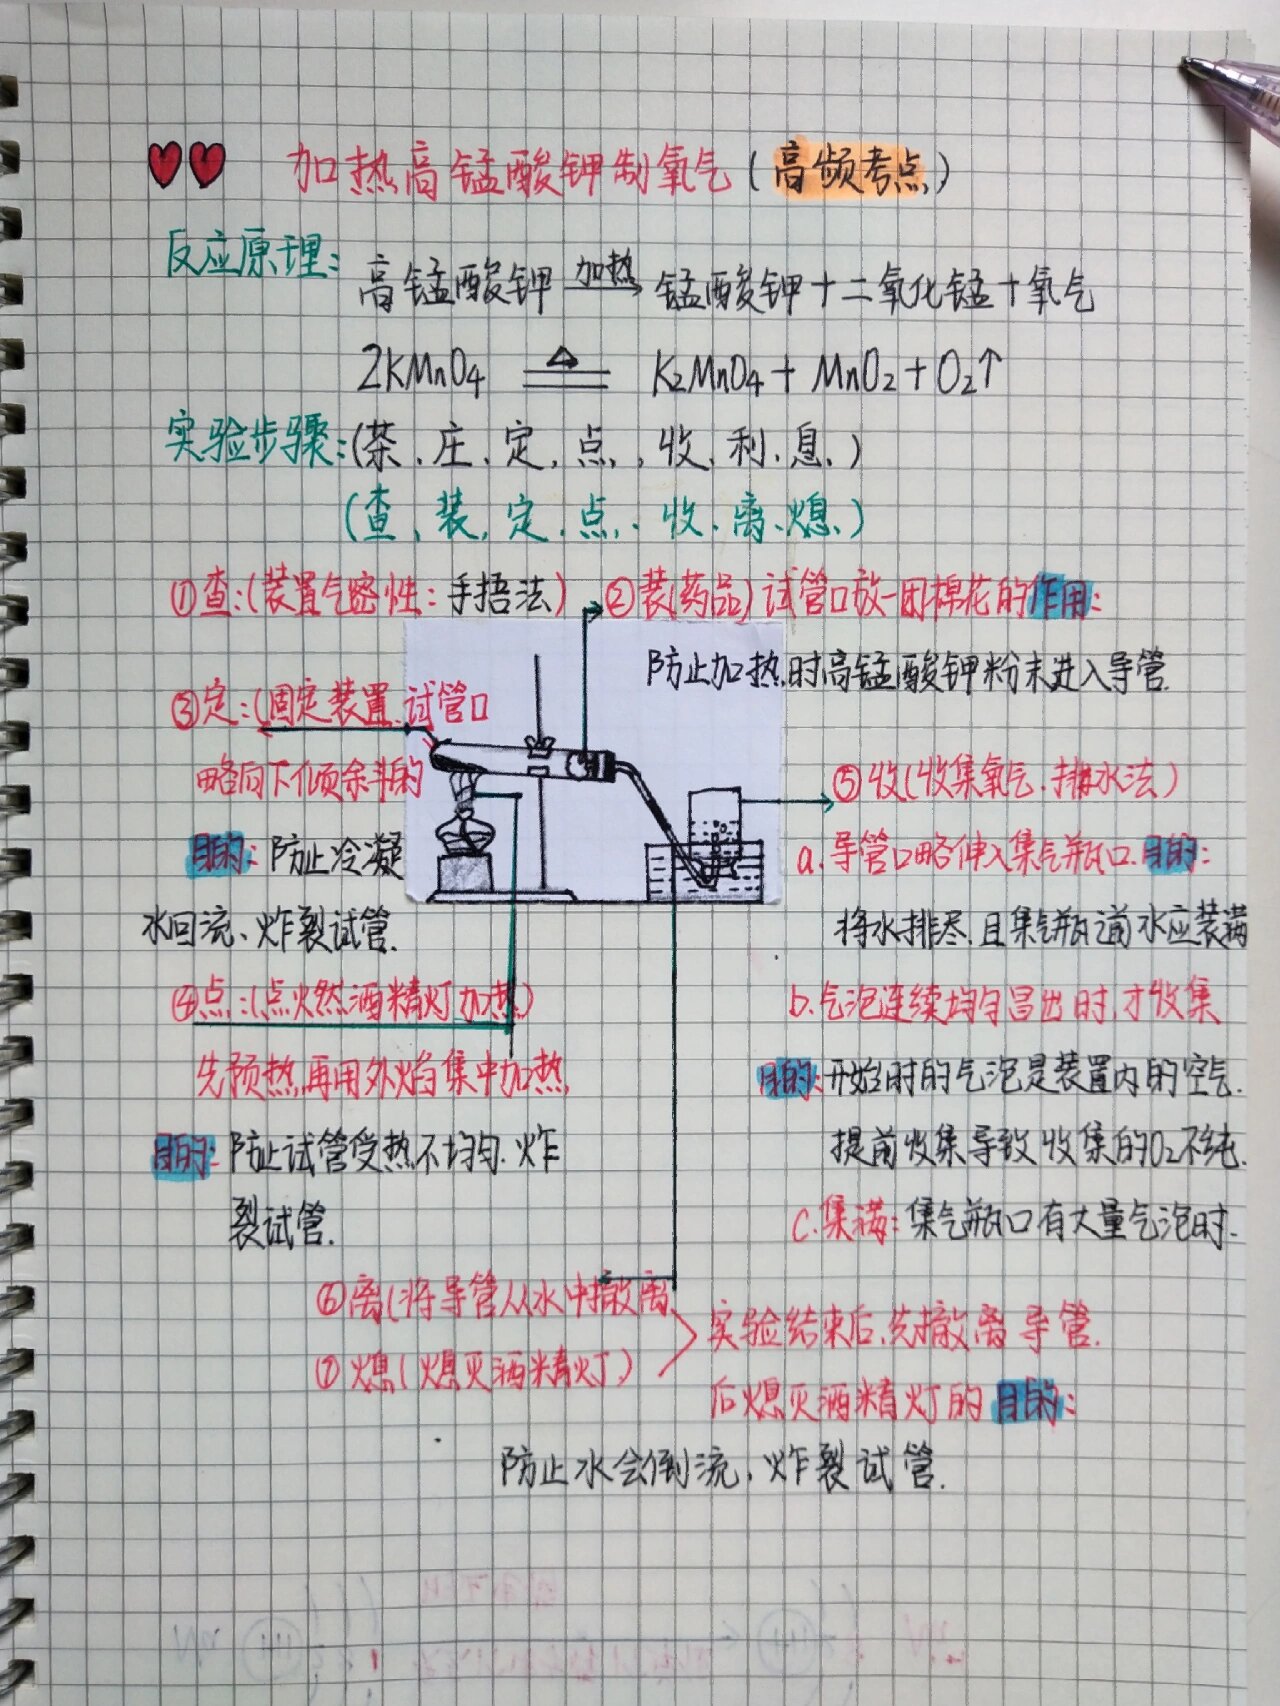 加热高锰酸钾制氧气(高频考点)
反应原理: 高锰酸钾 加热 锰酸钾+二氧化锰+氧气
2KMnO4 △ K2MnO4 + MnO2 + O2↑
实验步骤:(茶、庄、定、点、收、利、息、)
(查、装、定、点、收、离、熄、)
①查:(装置气密性: 手捂法)
②装(药品) 试管口放一团棉花的作用:
防止加热时高锰酸钾粉末进入导管.
③定:(固定装置.试管口
略向下倾斜的
目的: 防止冷凝
水回流、炸裂试管.
④点:(点燃酒精灯加热)
先预热,再用外焰集中加热,
目的: 防止试管受热不均匀.炸
裂试管.
⑤收(收集氧气.排水法)
a.导管口略伸入集气瓶口.目的:
将水排尽.且集气瓶前水应装满
b.气泡连续均匀冒出时,才收集
目的:开始时的气泡是装置内的空气.
提前收集导致收集的O2不纯.
c.集满: 集气瓶口有大量气泡时.
⑥离(将导管从水中撤离
⑦熄(熄灭酒精灯)
实验结束后,先撤离导管.
后熄灭酒精灯的目的:
防止水会倒流,炸裂试管.